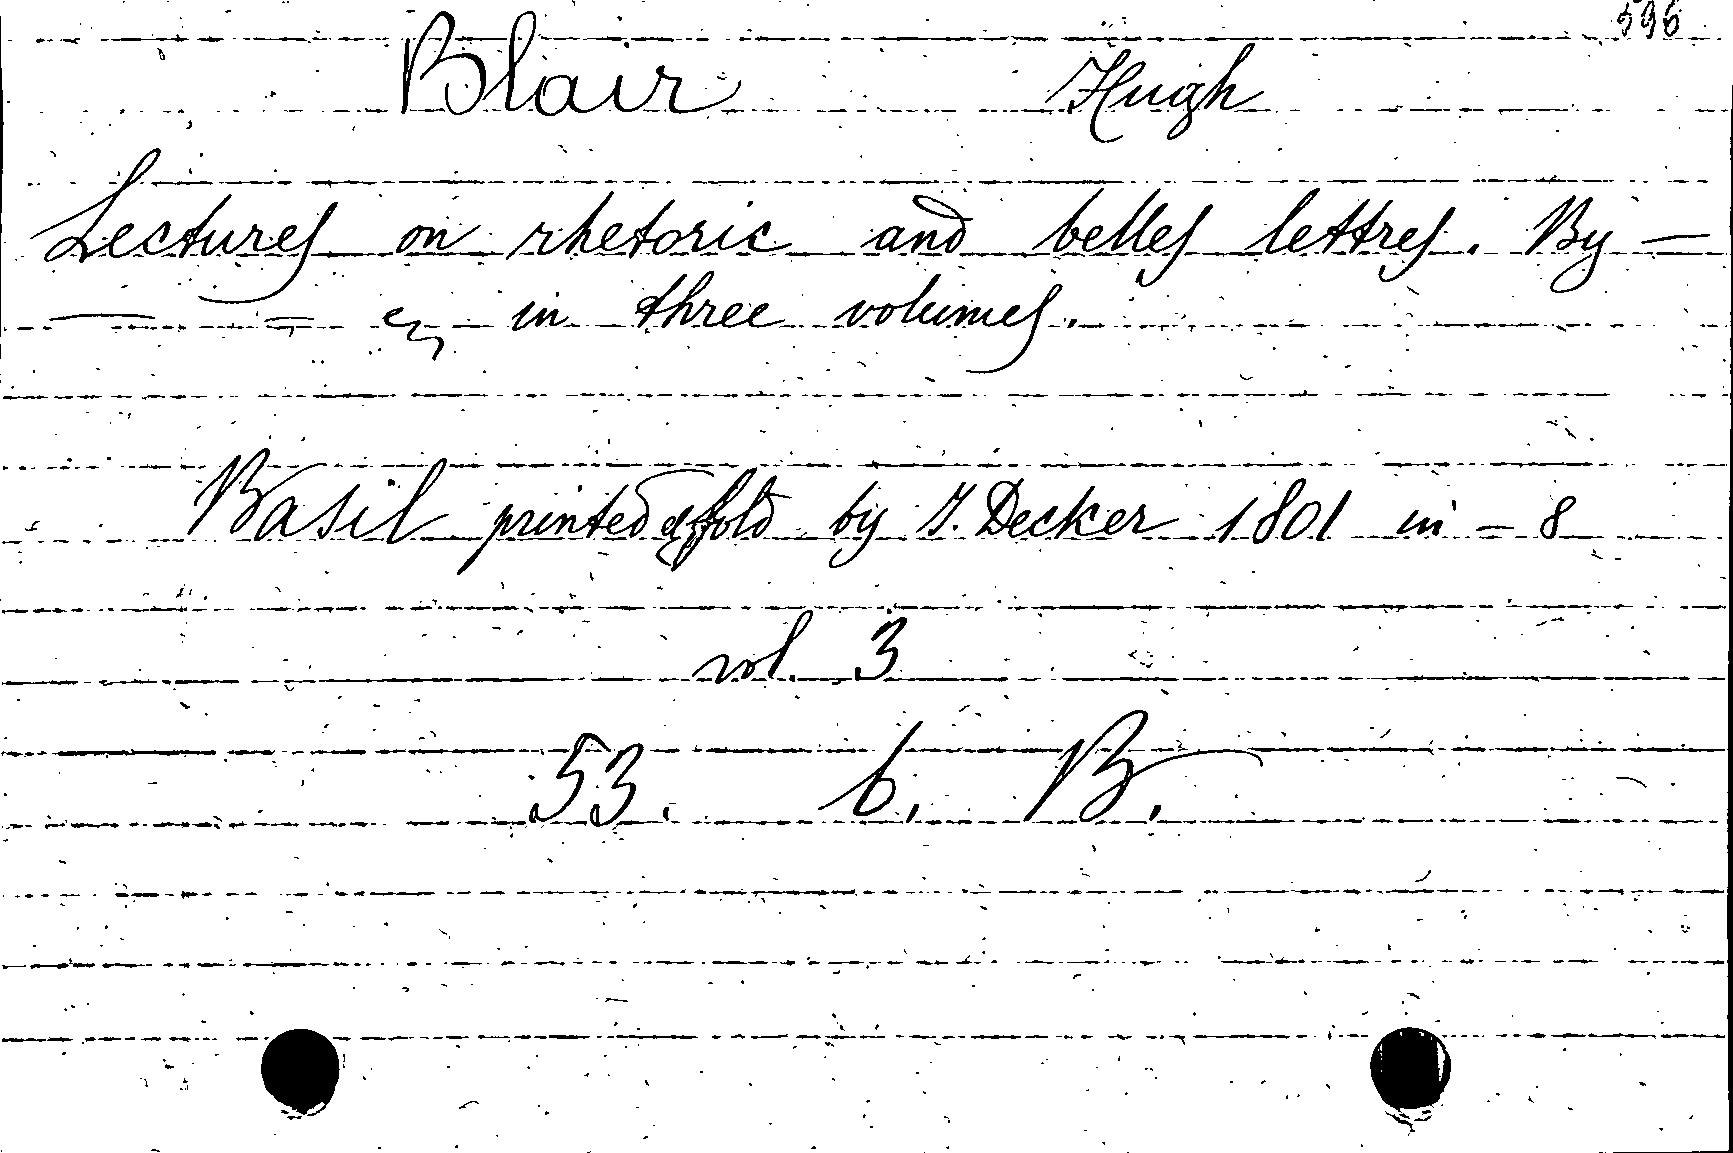 596
Blair Hugh
Lectures on rhetoric and belles lettres. By —
— — in three volumes.
Basil printed & sold by J. Decker 1801 in - 8
vol. 3
53. b. B.